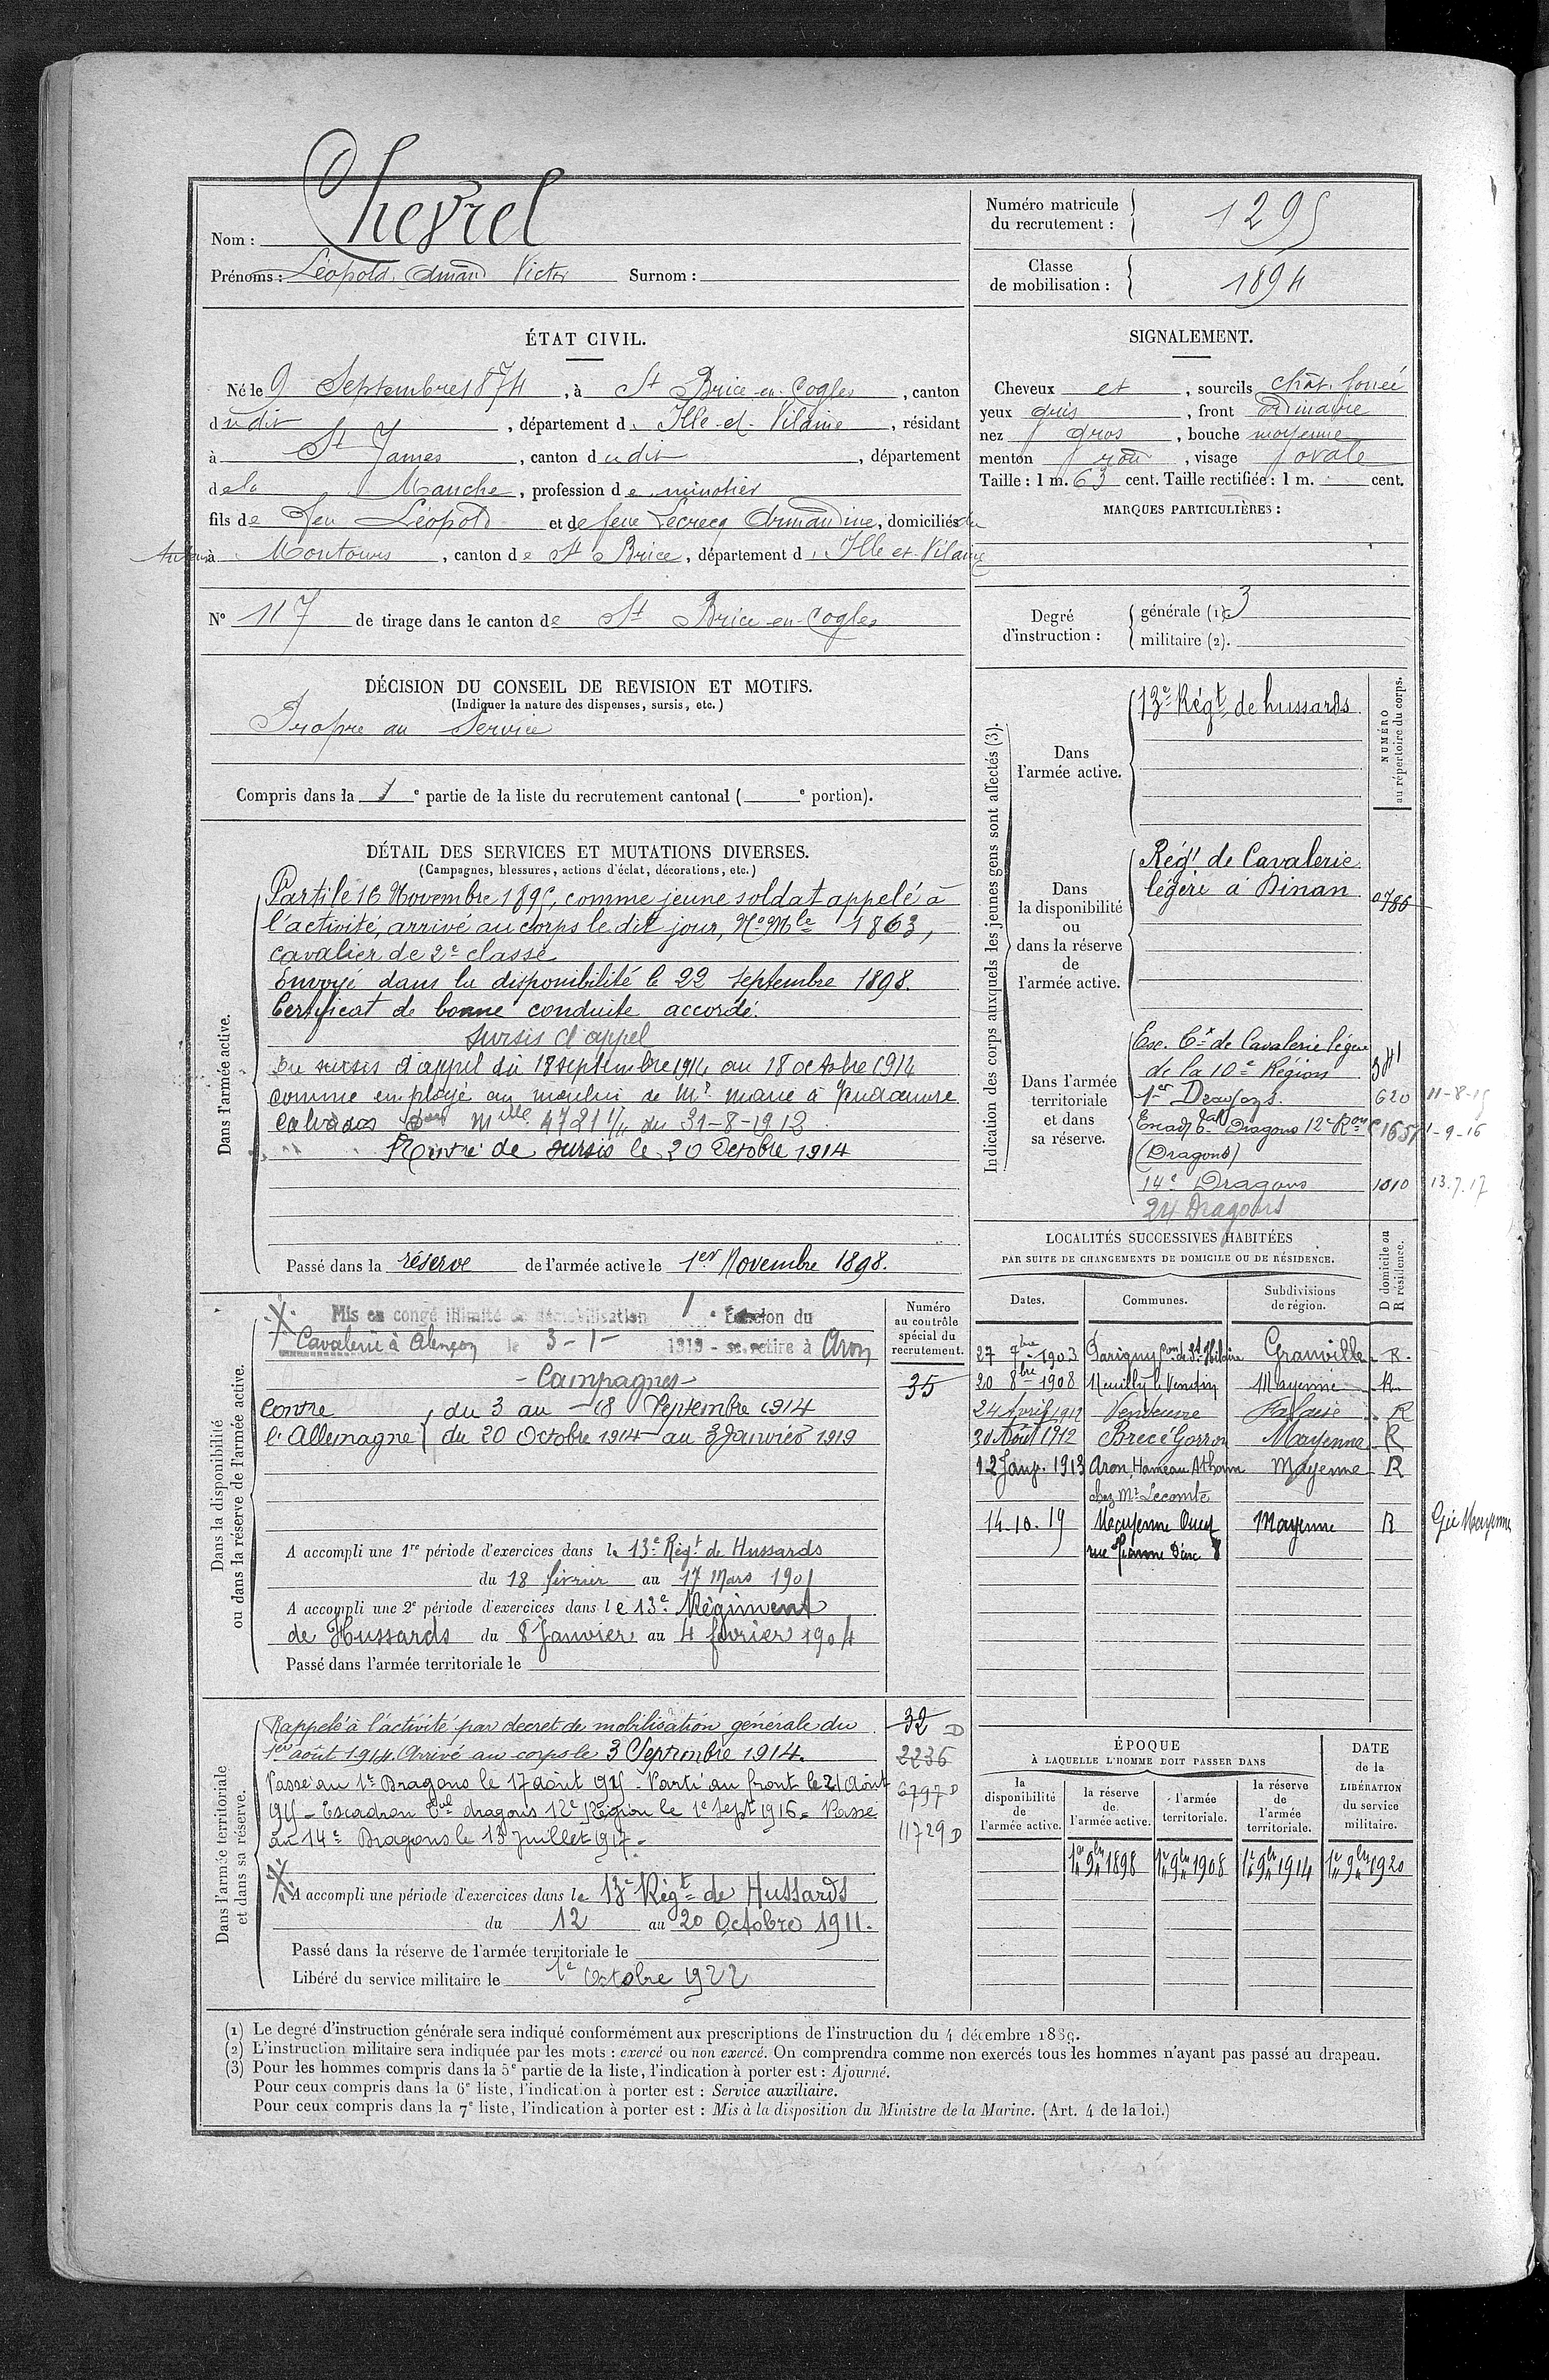 Nom : Chevrel
Prénoms : Léopold Amand Victor Surnom :
Numéro matricule du recrutement : 1295
Classe de mobilisation : 1894
ÉTAT CIVIL.
Né le 9 Septembre 1874, à St Brice-en-Cogles, canton
dudit, département d'Ille-et-Vilaine, résidant
à St James, canton dudit, département
de la Manche, profession de minotier
fils de feu Léopold et de feue Lecrecq Armandine, domiciliés
à Montours, canton de St Brice, département d'Ille et Vilaine
N° 117 de tirage dans le canton de St Brice-en-Cogles
SIGNALEMENT.
Cheveux et, sourcils chât. foncé
yeux gris, front ordinaire
nez gros, bouche moyenne
menton rond, visage ovale
Taille : 1 m. 63 cent. Taille rectifiée : 1 m. cent.
MARQUES PARTICULIÈRES :
Degré d'instruction :
générale (1). 3
militaire (2).
DÉCISION DU CONSEIL DE REVISION ET MOTIFS.
(Indiquer la nature des dispenses, sursis, etc.)
Propre au Service
Compris dans la 1e partie de la liste du recrutement cantonal ( e portion).
DÉTAIL DES SERVICES ET MUTATIONS DIVERSES.
(Campagnes, blessures, actions d'éclat, décorations, etc.)
Dans l'armée active.
Parti le 16 Novembre 1895, comme jeune soldat appelé à
l'activité, arrivé au corps le dit jour, No Mle 1863,
cavalier de 2e classe
Envoyé dans la disponibilité le 22 septembre 1898.
Certificat de bonne conduite accordé.
Sursis d'appel
En sursis d'appel du 18 septembre 1914 au 18 octobre 1914
comme employé au moulin de Mr Marie à
Calvados 4721 1/11 du 31-8-1912
Rentré de sursis le 20 Octobre 1914
Passé dans la réserve de l'armée active le 1er Novembre 1898.
Indication des corps auxquels les jeunes gens sont affectés (3).
NUMÉRO au répertoire du corps.
Dans l'armée active.
13e Régt de hussards
Dans la disponibilité ou dans la réserve de l'armée active.
Régt de Cavalerie
légère à Dinan 0786
Dans l'armée territoriale et dans sa réserve.
Esc. de Cavalerie légère
de la 10e Région 341
1er Dragons 620 11-8-15
Escad. Dragons 12e Ron 1657 1-9-16
(Dragons)
14e Dragons 1010 13.7.17
24 Dragons
Dans la disponibilité ou dans la réserve de l'armée active.
Numéro au contrôle spécial du recrutement.
35
Mis en congé illimité de démobilisation 1e Échelon du
Cavalerie à Alençon le 3-1-1919 - se retire à Aron
- Campagnes -
Contre l'Allemagne
du 3 au 18 Septembre 1914
du 20 Octobre 1914 au 3 Janvier 1919
A accompli une 1re période d'exercices dans le 13e Régt de Hussards
du 18 février au 17 Mars 1901
A accompli une 2e période d'exercices dans le 13e Régiment
de Hussards du 8 Janvier au 4 février 1904
Passé dans l'armée territoriale le
LOCALITÉS SUCCESSIVES HABITÉES
PAR SUITE DE CHANGEMENTS DE DOMICILE OU DE RÉSIDENCE.
Dates. Communes. Subdivisions de région. D domicile ou R résidence.
27 7bre 1903 Parigny Con de St Hilaire Granville R.
20 8bre 1908 Neuilly le Vendin Mayenne R
24 Avril 1912 Vendeuvre Falaise R
30 Août 1912 Brecé Gorron Mayenne R
12 Janv. 1913 Aron, Hameau Mayenne R
chez Mr Lecomte
14.10.19 Mayenne Ouest Mayenne R Gie Mayenne
rue Jeanne D'arc 8
Dans l'armée territoriale et dans sa réserve.
Rappelé à l'activité par decret de mobilisation générale du
1er août 1914. Arrivé au corps le 3 Septembre 1914.
Passé au 1er Dragons le 17 août 915 - Parti au front le 21 Août
915 - Escadron dragons 12e Région le 1e Sept 1916 - Passé
au 14e Dragons le 13 Juillet 1917 -
32 D
2236
6797 D
11729 D
A accompli une période d'exercices dans le 13e Régt de Hussards
du 12 au 20 Octobre 1911.
Passé dans la réserve de l'armée territoriale le
Libéré du service militaire le 1e Octobre 1922
ÉPOQUE
À LAQUELLE L'HOMME DOIT PASSER DANS
la disponibilité de l'armée active. la réserve de l'armée active. l'armée territoriale. la réserve de l'armée territoriale.
DATE de la LIBÉRATION du service militaire.
1er 9bre 1898 1er 9bre 1908 1er 9bre 1914 1er 9bre 1920
(1) Le degré d'instruction générale sera indiqué conformément aux prescriptions de l'instruction du 4 décembre 1889.
(2) L'instruction militaire sera indiquée par les mots : exercé ou non exercé. On comprendra comme non exercés tous les hommes n'ayant pas passé au drapeau.
(3) Pour les hommes compris dans la 5e partie de la liste, l'indication à porter est : Ajourné.
Pour ceux compris dans la 6e liste, l'indication à porter est : Service auxiliaire.
Pour ceux compris dans la 7e liste, l'indication à porter est : Mis à la disposition du Ministre de la Marine. (Art. 4 de la loi.)